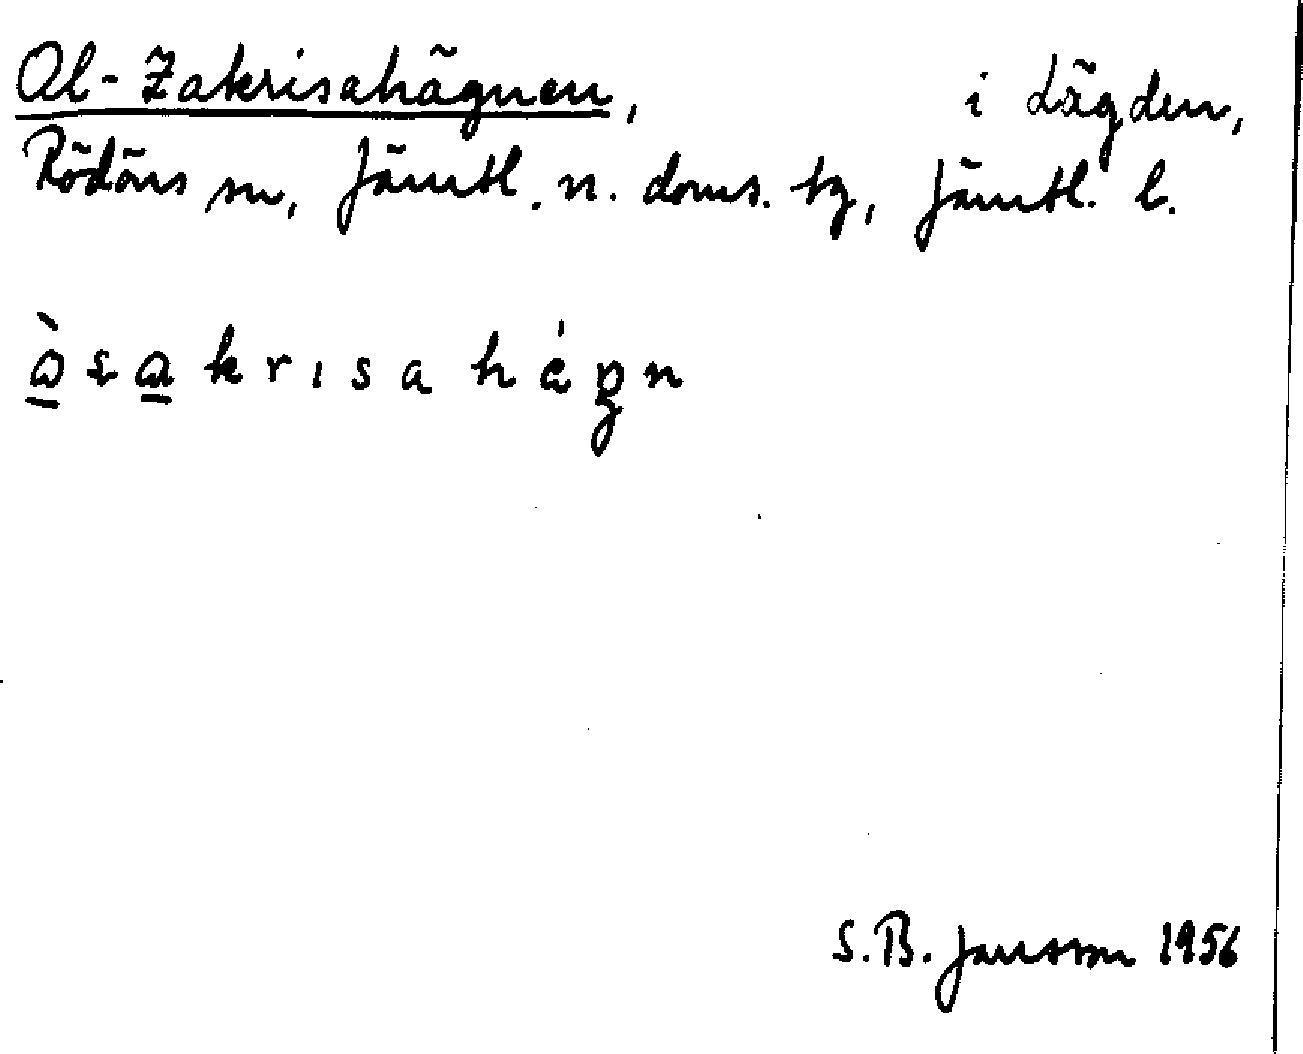 Ol-Zakrisahägnen, i Lägden,
Rödöns sn, Jämtl. n. doms. tg, Jämtl. l.
S.B. Jansson 1956